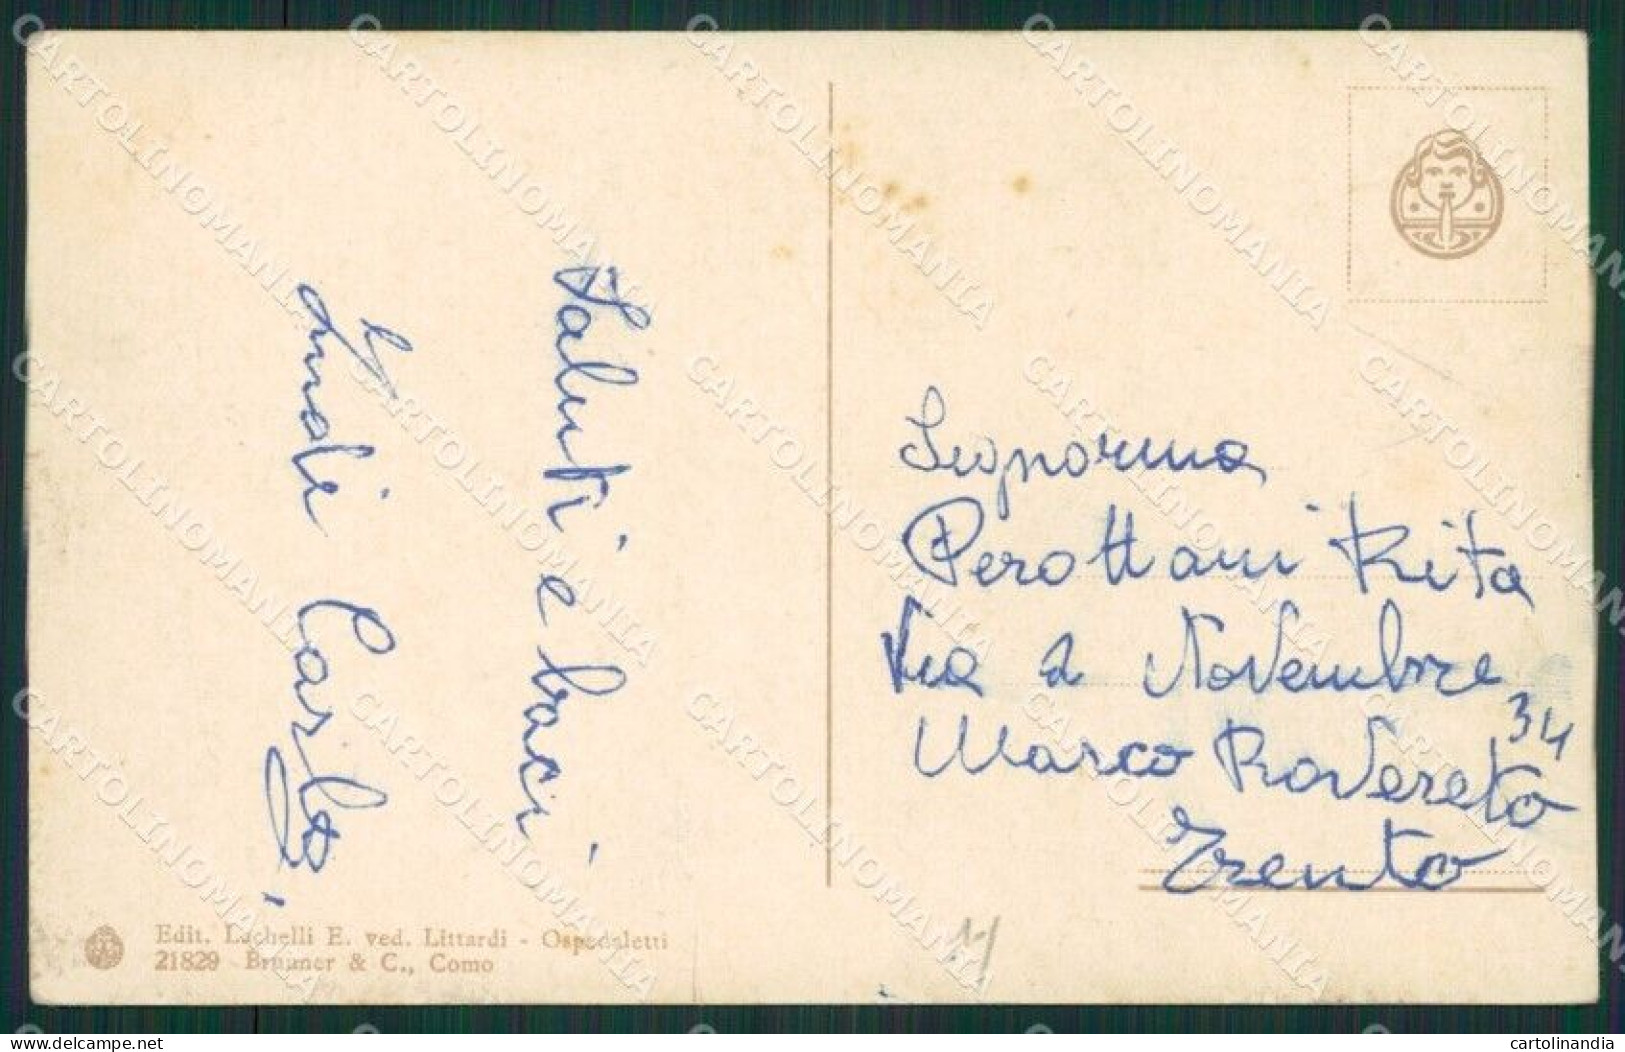 Saluti e baci
Carlo
Signorina
Perottani Rita
Via 2 Novembre
34
Marco Rovereto
Trento
Edit. Lichelli E. ved. Littardi - Ospedaletti
21829 Brunner & C., Como
delcampe.net
cartolinandia